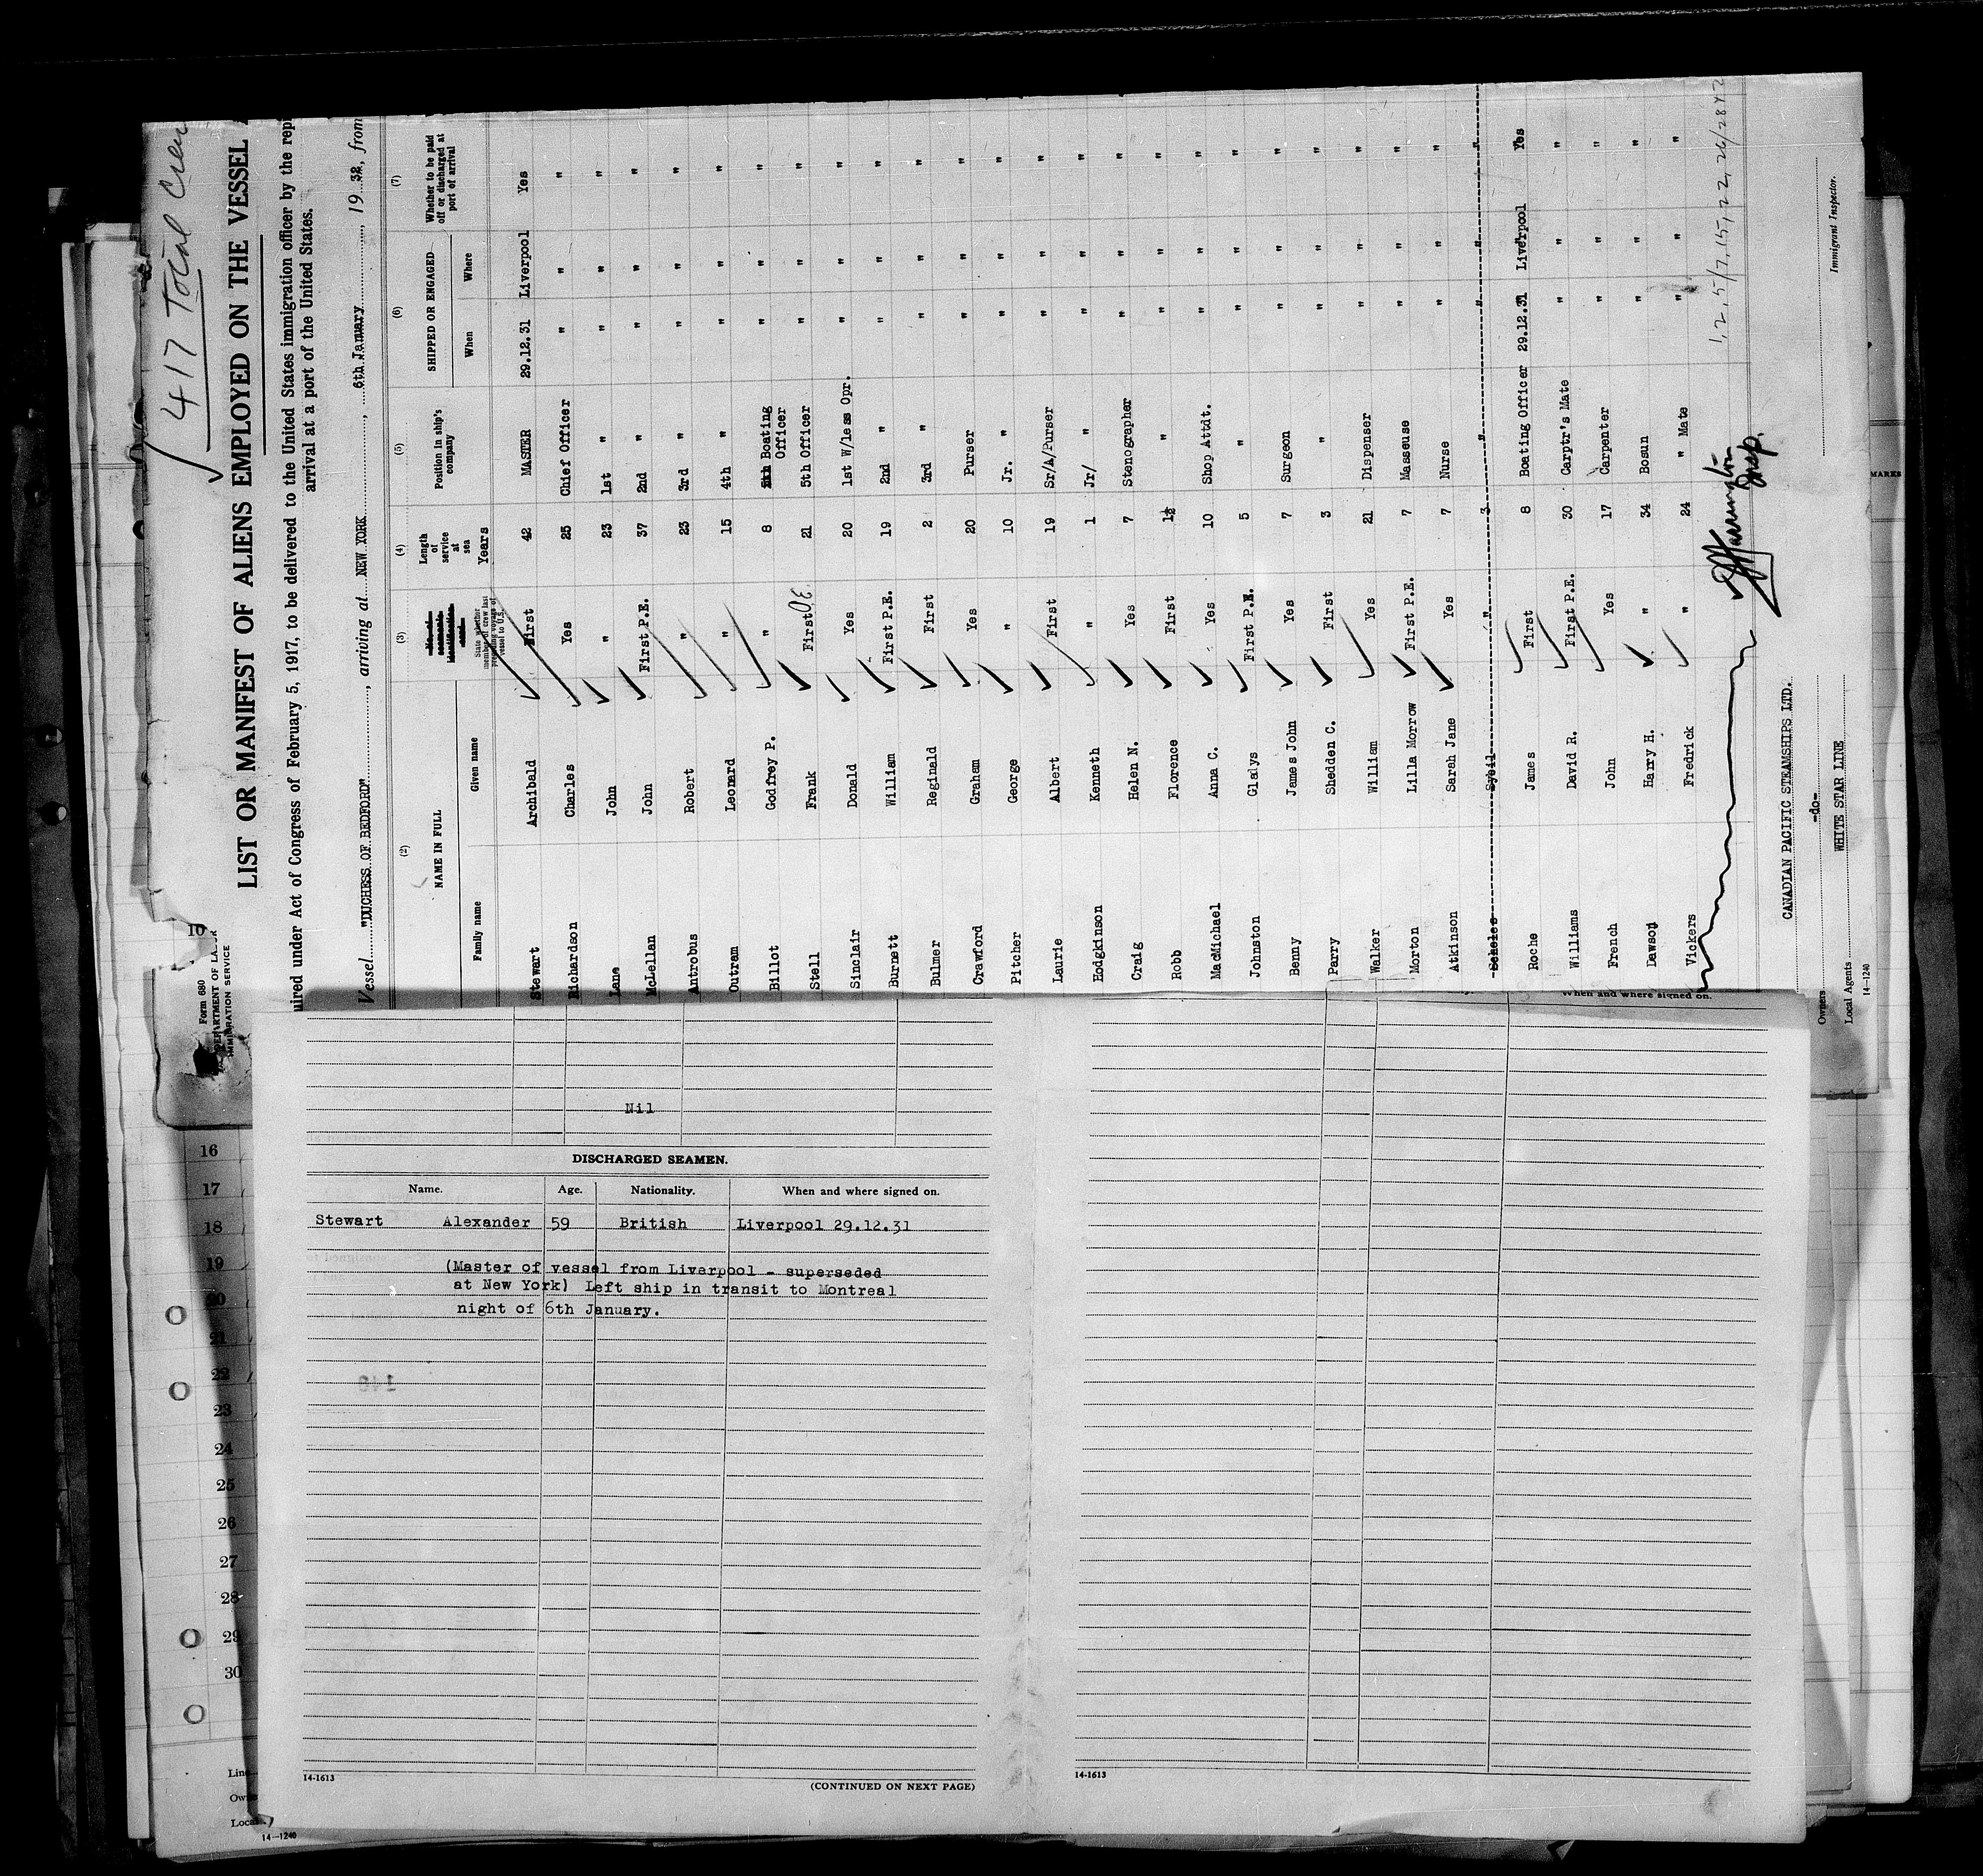 417 Total Crew
Form 680
DEPARTMENT OF LABOR
IMMIGRATION SERVICE
LIST OR MANIFEST OF ALIENS EMPLOYED ON THE VESSEL
uired under Act of Congress of February 5, 1917, to be delivered to the United States immigration officer by the rep
arrival at a port of the United States.
Vessel "DUCHESS OF BEDFORD", arriving at NEW YORK, 6th January, 1932, from
(2) (3) (4) (5) (6) (7)
NAME IN FULL State whether member of crew last preceding voyage of vessel to U.S. Length of service at sea Position in ship's company SHIPPED OR ENGAGED Whether to be paid off or discharged at port of arrival
Family name Given name Years When Where
Stewart Archibald First 42 MASTER 29.12.31 Liverpool Yes
Richardson Charles Yes 25 Chief Officer " " "
Lane John " 23 1st " " " "
McLellan John First P.E. 37 2nd " " " "
Antrobus Robert " 23 3rd " " " "
Outram Leonard " 15 4th " " " "
Billot Godfrey P. " 8 Boating Officer " " "
Stell Frank First P.E. 21 5th Officer " " "
Sinclair Donald Yes 20 1st W/less Opr. " " "
Burnett William First P.E. 19 2nd " " " "
Bulmer Reginald First 2 3rd " " " "
Crawford Graham Yes 20 Purser " " "
Pitcher George " 10 Jr. " " " "
Laurie Albert First 19 Sr/A/Purser " " "
Hodgkinson Kenneth " 1 Jr/ " " " "
Craig Helen N. Yes 7 Stenographer " " "
Robb Florence First 1½ " " " "
MacMichael Anna C. Yes 10 Shop Attdt. " " "
Johnston Gladys First P.E. 5 " " " "
Benny James John Yes 7 Surgeon " " "
Parry Shedden C. First 3 " " " "
Walker William Yes 21 Dispenser " " "
Morton Lilla Morrow First P.E. 7 Masseuse " " "
Atkinson Sarah Jane Yes 7 Nurse " " "
Sybil " 3 " " " "
Roche James First 8 Boating Officer 29.12.31 Liverpool Yes
Williams David R. First P.E. 30 Carptr's Mate " " "
French John Yes 17 Carpenter " " "
Dawson Harry H. " 34 Bosun " " "
Vickers Fredrick " 24 " Mate " " "
Owners CANADIAN PACIFIC STEAMSHIPS LTD.
-do-
Local Agents WHITE STAR LINE
Immigrant Inspector.
14-1240
MARKS
When and where signed on.
Nil
DISCHARGED SEAMEN.
Name. Age. Nationality. When and where signed on.
Stewart Alexander 59 British Liverpool 29.12.31
(Master of vessel from Liverpool - superseded
at New York) Left ship in transit to Montreal
night of 6th January.
14-1613
(CONTINUED ON NEXT PAGE)
14-1613
10
16
17
18
19
20
21
22
23
24
25
26
27
28
29
30
Line
Local
14-1240